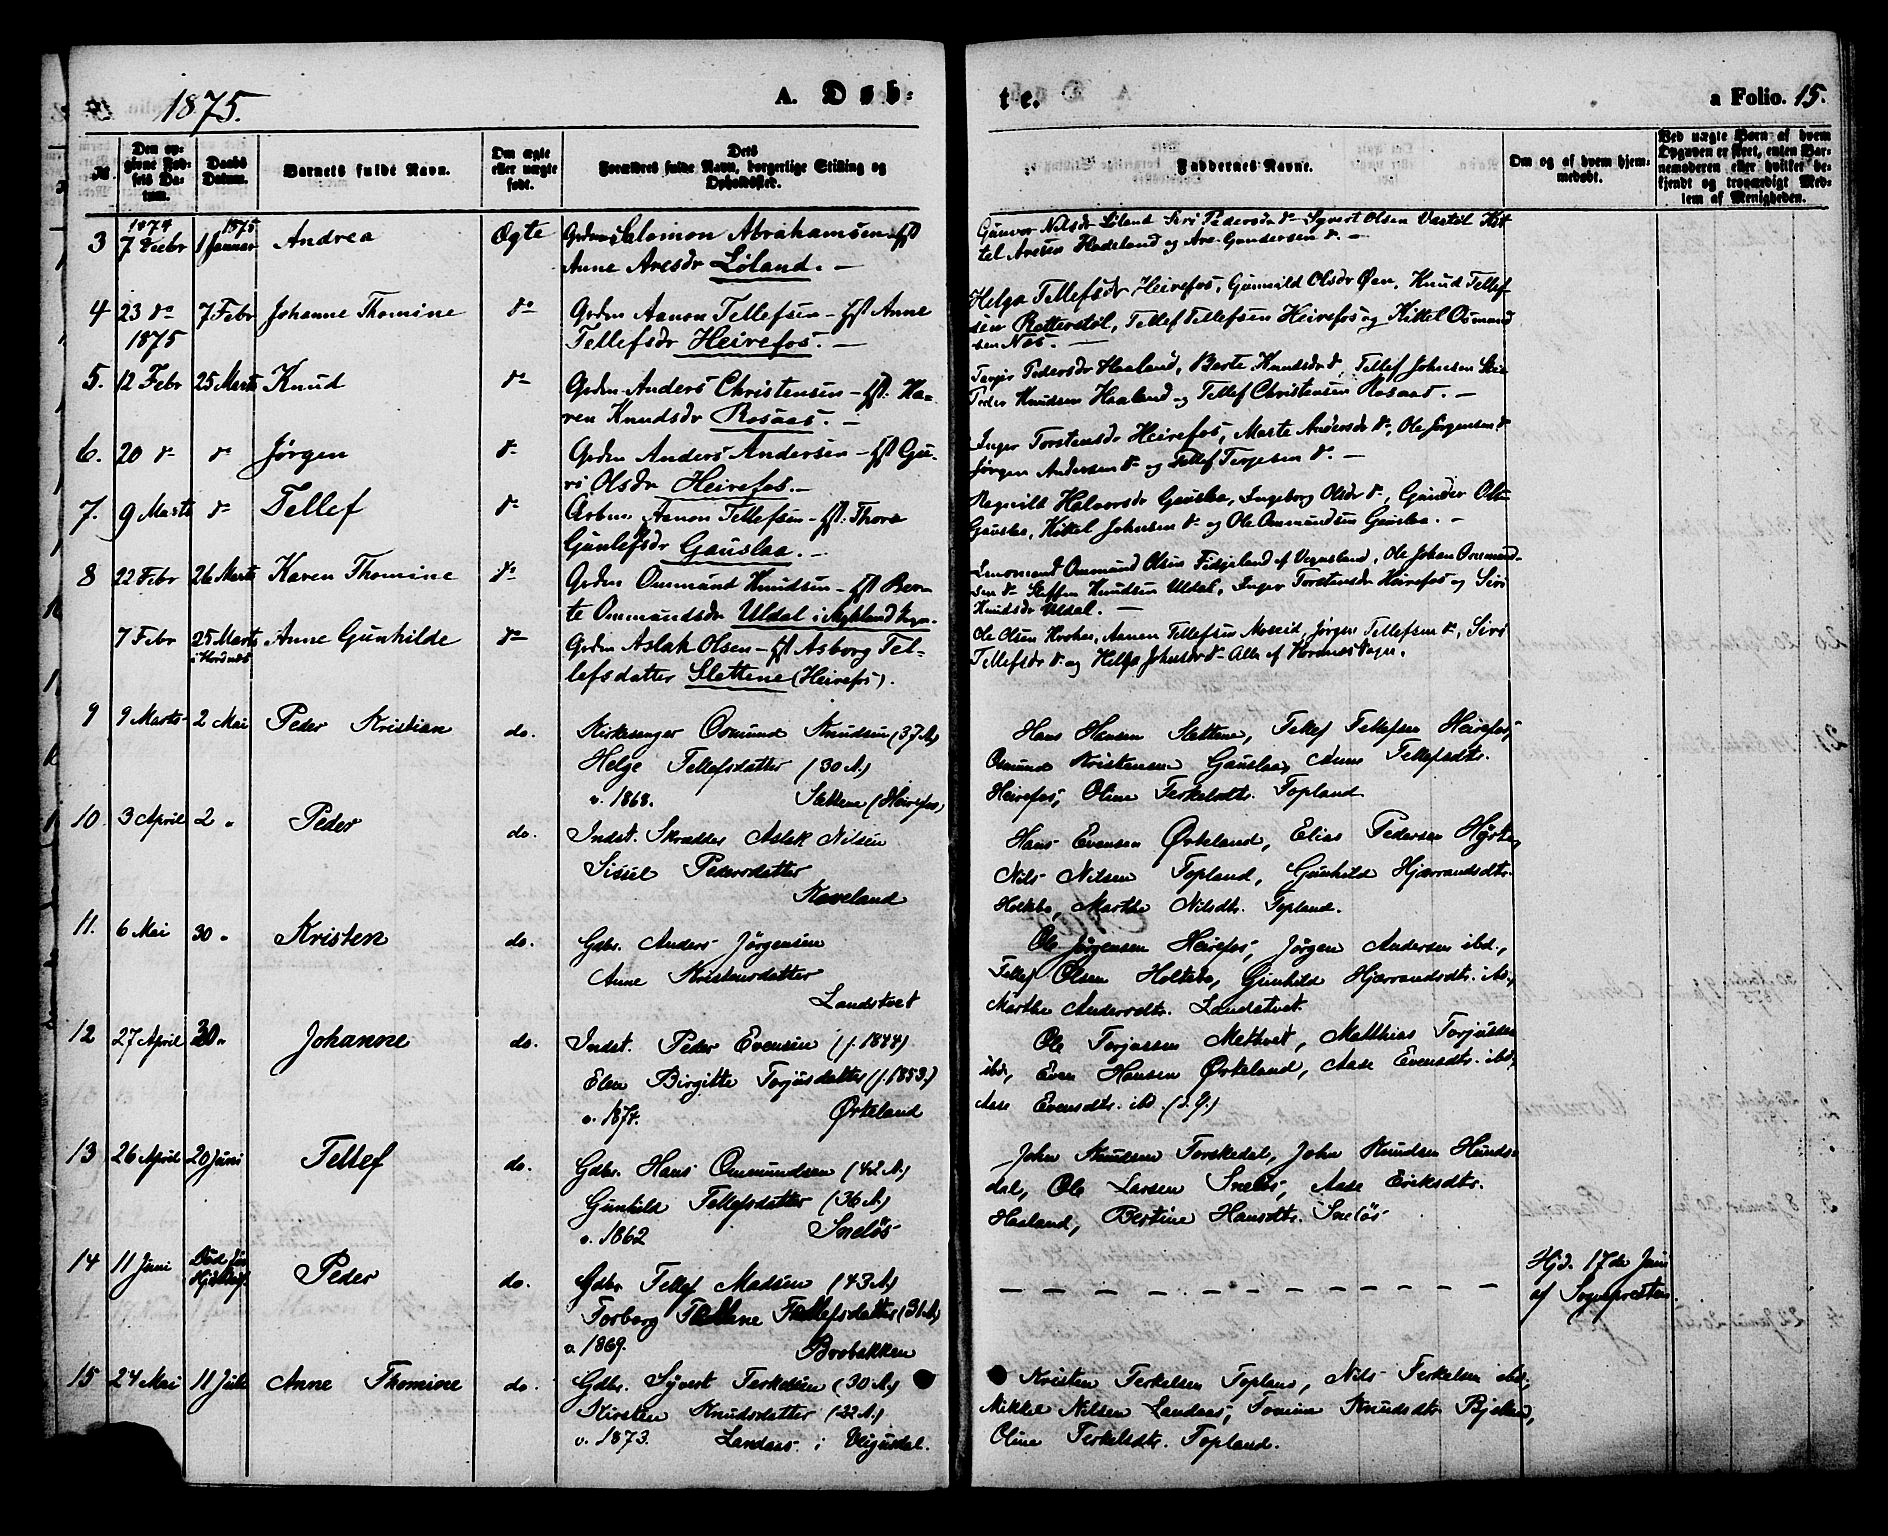 1875.
A. Døb-
te.
a Folio. 15.
№
Den op-
givne Fød-
sels Da-
tum.
Daabs
Datum.
Barnets fulde Navn.
Om ægte
eller uægte
født.
Dets
Forældres fulde Navn, borgerlige Stilling og
Opholdssted.
Faddernes Navne.
Om og af hvem hjem-
medøbt.
Ved uægte Barn af hvem
Opgaven er skeet, enten Bar-
nemoderen eller hvilket be-
kjendt og troværdigt Med-
lem af Menigheden.
1874 1875
3 7 Decbr 1 Januar Andrea Ægte Grdm Salomon Abrahamsen - Hst
Anne Aresdr Løland. —
Gunvor Nilsdr Løland Siri Pedersdr do Syvert Olsen Vastøl Kit-
tel Aresen Hodeland og Are Gundersen do —
4 23 do 7 Febr Johanne Thomine do Grdm Aanon Tellefsen - Hst Anne
Tellefsdr Heirefos. —
Helga Tellefsdr Heirefos, Gunnild Olsdr Øen, Knud Tellef-
sen Rotterstøl, Tellef Tellefsen Heirefos og Kittel Osmund
sen Næs. —
1875
5. 12 Febr 25 Marts Knud do Grdm Anders Christensen - Hst. Ka-
ren Knudsdr Rosaas. —
Targjer Pedersdr Haaland, Berte Knudsdr do, Tellef Johnsen
Peder Knudsen Haaland og Tellef Christensen Rosaas. —
6. 20 do do Jørgen do Grdm Anders Andersen - Hst Gu-
ri Olsdr Heirefos. —
Inger Torstensdr Heirefos, Marte Andersdr do, Ole Jørgensen do
Jørgen Andersen do og Tellef Terjesen do. —
7. 9 Marts do Tellef do Arbm. Aanon Tellefsen - Hst. Thore
Gunlefsdr Gauslaa. —
Ragnild Halvorsdr Gauslaa, Ingeborg Olsdr do, Gunder Ols
Gauslaa, Kittel Johnsen do og Ole Ommundsen Gauslaa. —
8 22 Febr 26 Marts Karen Thomine do Grdm Ommund Knudsen - Hst Ber-
te Ommundsdr Uldal i Mykland Sogn.
Ommund Olsen Fidjeland af Vegusland, Ole Johan Ommund-
sen do Steffen Knudsen Uldal, Inger Torstensdr Heirefos og Siri
Knudsdr Uldal. —
7 Febr 25 Marts
i Vordnes
Anne Gunhilde do Grdm Aslak Olsen - Hst Asborg Tel-
lefsdatter Slettene (Heirefos).
Ole Olsen Aanon Tellefsen Moseid, Jørgen Tellefsen do, Siri
Tellefsdr do og Helga Johnsdr do Alle af Vormnes Sogn.
9 9 Marts 2 Mai Peder Kristian do. Kirkesanger Osmund Knudsen (37 A)
Helge Tellefsdatter (30 A.)
v. 1868. Slettene (Heirefos)
Hans Hansen Slettene, Tellef Tellefsen Heirefos,
Osmund Kristensen Gauslaa, Anne Tellefsdtr.
Heirefos, Oline Terkelsdtr. Topland
10. 3 April 2 " Peder do. Indst. Skrædder Aslak Nilsen
Sissel Pedersdatter
Kaveland
Hans Evensen Ørkeland, Elias Pedersen
Nils Nilsen Topland, Gunhild Hjærrandsdtr.
Holtebo, Marthe Nilsdtr. Topland.
11. 6 Mai 30 " Kristen do. Gdbr. Anders Jørgensen
Anne Kristensdatter
Landstvet
Ole Jørgensen Heirefos, Jørgen Andersen ibd.,
Tellef Olsen Holtebo, Gunhild Hjærrandsdtr. ib.,
Marthe Andersdtr. Landstvet.
12 27 April 30 " Johanne do. Indst. Peder Evensen (f. 1844)
Elen Birgitte Torjusdatter (f. 1853.)
v. 1874. Ørkeland
Ole Torjussen Metveit, Matthias Torjussen
ibd., Even Hansen Ørkeland, Aase Evensdtr. ibd.,
Aase Evensdtr. ib.
13 26 April 20 Juni Tellef do. Gdbr. Hans Ommundsen (42 A.)
Gunhild Tellefsdatter (36 A.)
v. 1862 Sneløs
John Knudsen Torskedal, John Knudsen Hunds-
dal, Ole Larsen Sneløs, Aase Eriksdtr.
Haaland, Bertine Hansdtr. Sneløs
14 11 Juni Peder do. Gdbr. Tellef Madsen (43 A.)
Torborg Tellefsdatter (31 A.)
v. 1869. Bordbakken
Hjd. 17de Juni
af Sognepresten.
15 24 Mai 11 Juli Anne Thomine do. Gdbr. Syvert Terkelsen (30 A.)
Kirsten Knudsdatter (22 A.)
v. 1873. Landaas i Vegusdal.
Kristen Terkelsen Topland, Nils Terkelsen ibd.,
Mikkel Nilsen Landaas, Tomine Knudsdtr.
Oline Terkelsdtr. Topland.